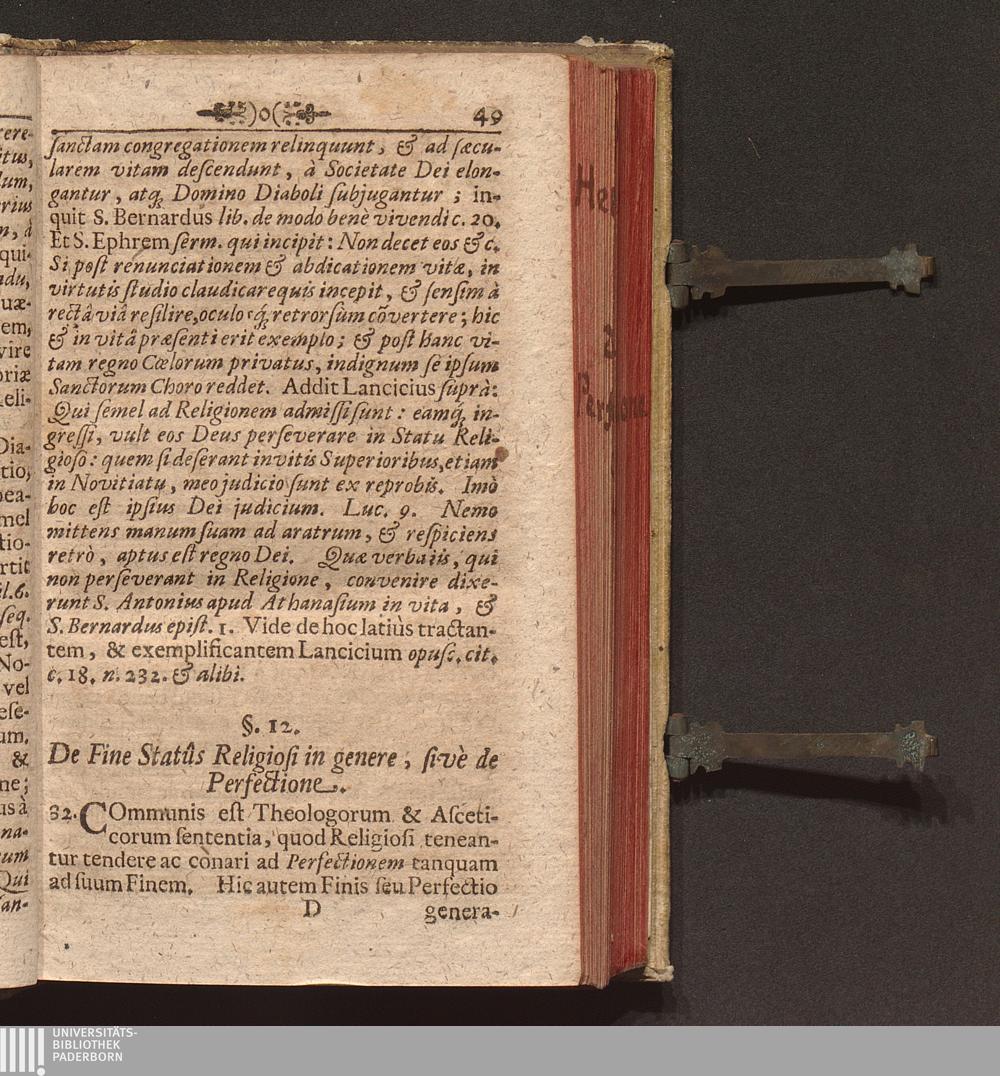 )o( 49
sanctam congregationem relinquunt, & ad sæcu-
larem vitam descendunt, à Societate Dei elon-
gantur, atq; Domino Diaboli subjugantur; in-
quit S. Bernardus lib. de modo benè vivendi c. 20.
Et S. Ephrem serm. qui incipit: Non decet eos &c.
Si post renunciationem & abdicationem vitæ, in
virtutis studio claudicare quis incepit, & sensim à
rectâ viâ resilire, oculosq; retrorsùm cōvertere; hic
& in vitâ præsenti erit exemplo; & post hanc vi-
tam regno Cœlorum privatus, indignum se ipsum
Sanctorum Choro reddet. Addit Lancicius suprà:
Qui semel ad Religionem admissi sunt: eamq; in-
gressi, vult eos Deus perseverare in Statu Reli-
gioso: quem si deserant invitis Superioribus, etiam
in Novitiatu, meo judicio sunt ex reprobis. Imò
hoc est ipsius Dei judicium. Luc. 9. Nemo
mittens manum suam ad aratrum, & respiciens
retrò, aptus est regno Dei. Quæ verba iis, qui
non perseverant in Religione, convenire dixe-
runt S. Antonius apud Athanasium in vita, &
S. Bernardus epist. 1. Vide de hoc latiùs tractan-
tem, & exemplificantem Lancicium opusc. cit.
c. 18. n. 232. & alibi.
§. 12.
De Fine Statûs Religiosi in genere, sivè de
Perfectione.
32. COmmunis est Theologorum & Asceti-
corum sententia, quod Religiosi tenean-
tur tendere ac conari ad Perfectionem tanquam
ad suum Finem. Hic autem Finis seu Perfectio
D genera-
UNIVERSITÄTS-
BIBLIOTHEK
PADERBORN